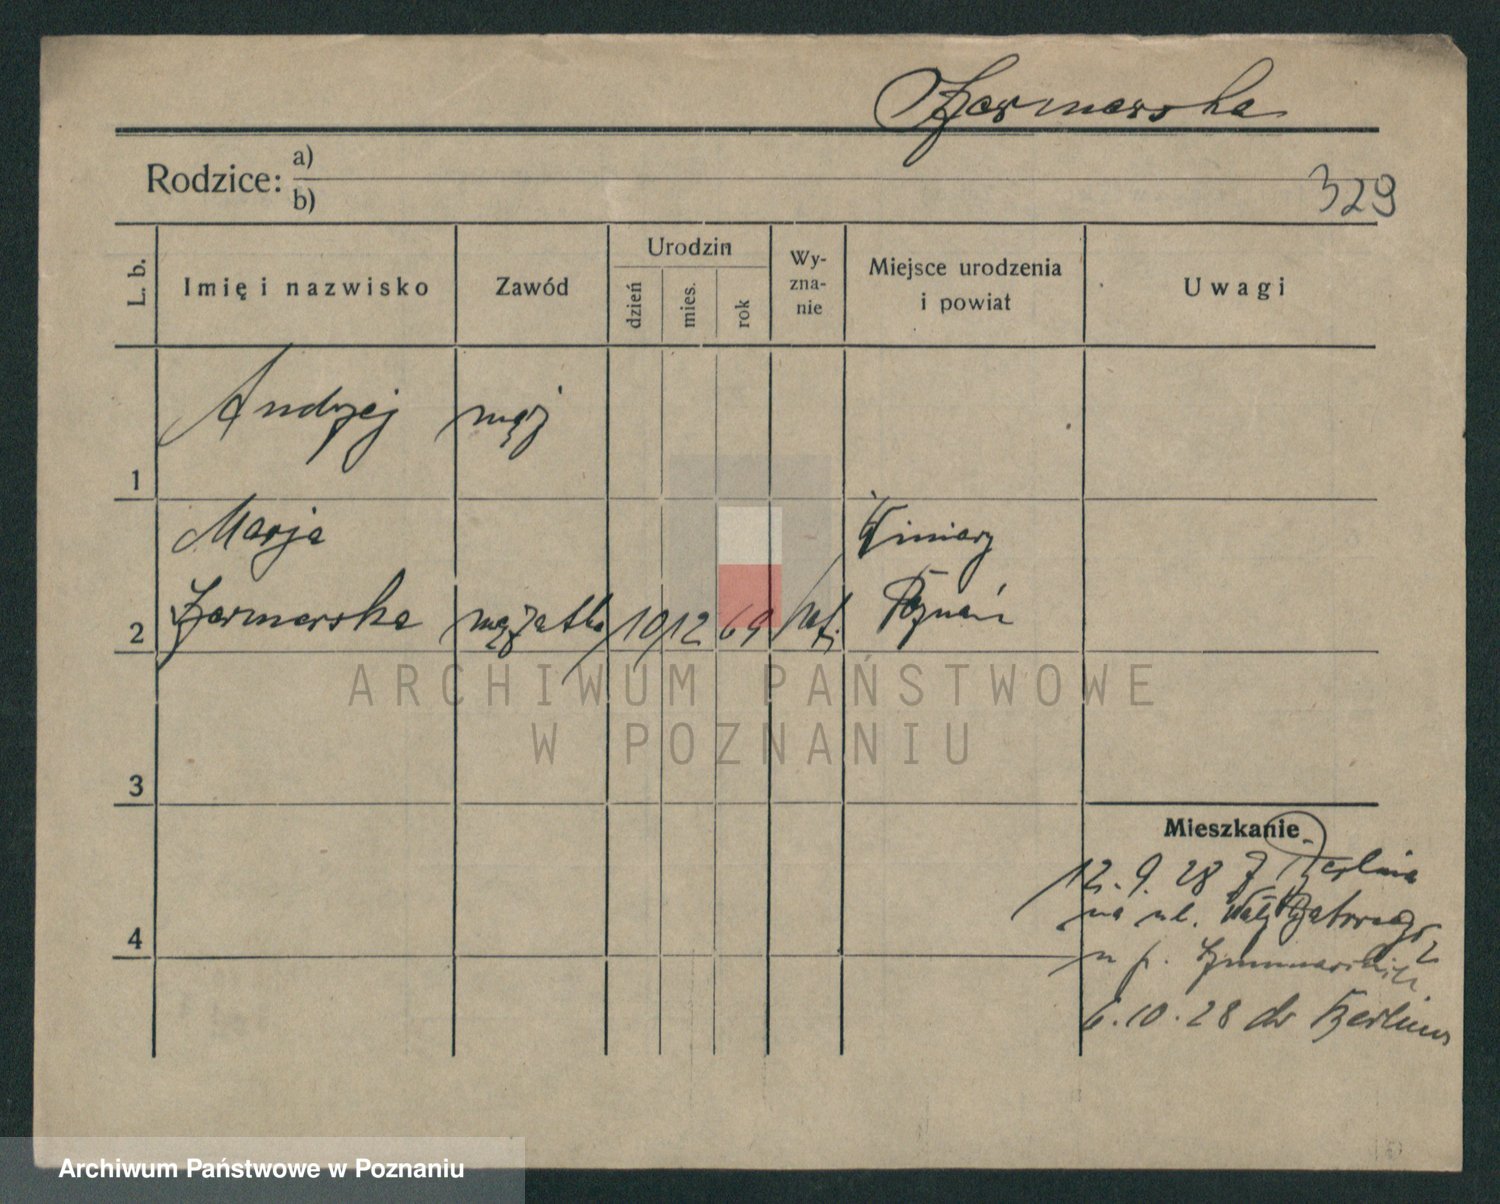 329
Rodzice: a)
b)
L. b.
Imię i nazwisko
Zawód
Urodzin
dzień
mies.
rok
Wy-
zna-
nie
Miejsce urodzenia
i powiat
Uwagi
Andrzej mąż
1
Marja Winiary
2 mężatka 10 12 69 kat. Poznań
ARCHIWUM PAŃSTWOWE
W POZNANIU
3
Mieszkanie
12. 9. 28 z Berlina
na ul.
4
u p.
6. 10. 28 do Berlina
Archiwum Państwowe w Poznaniu